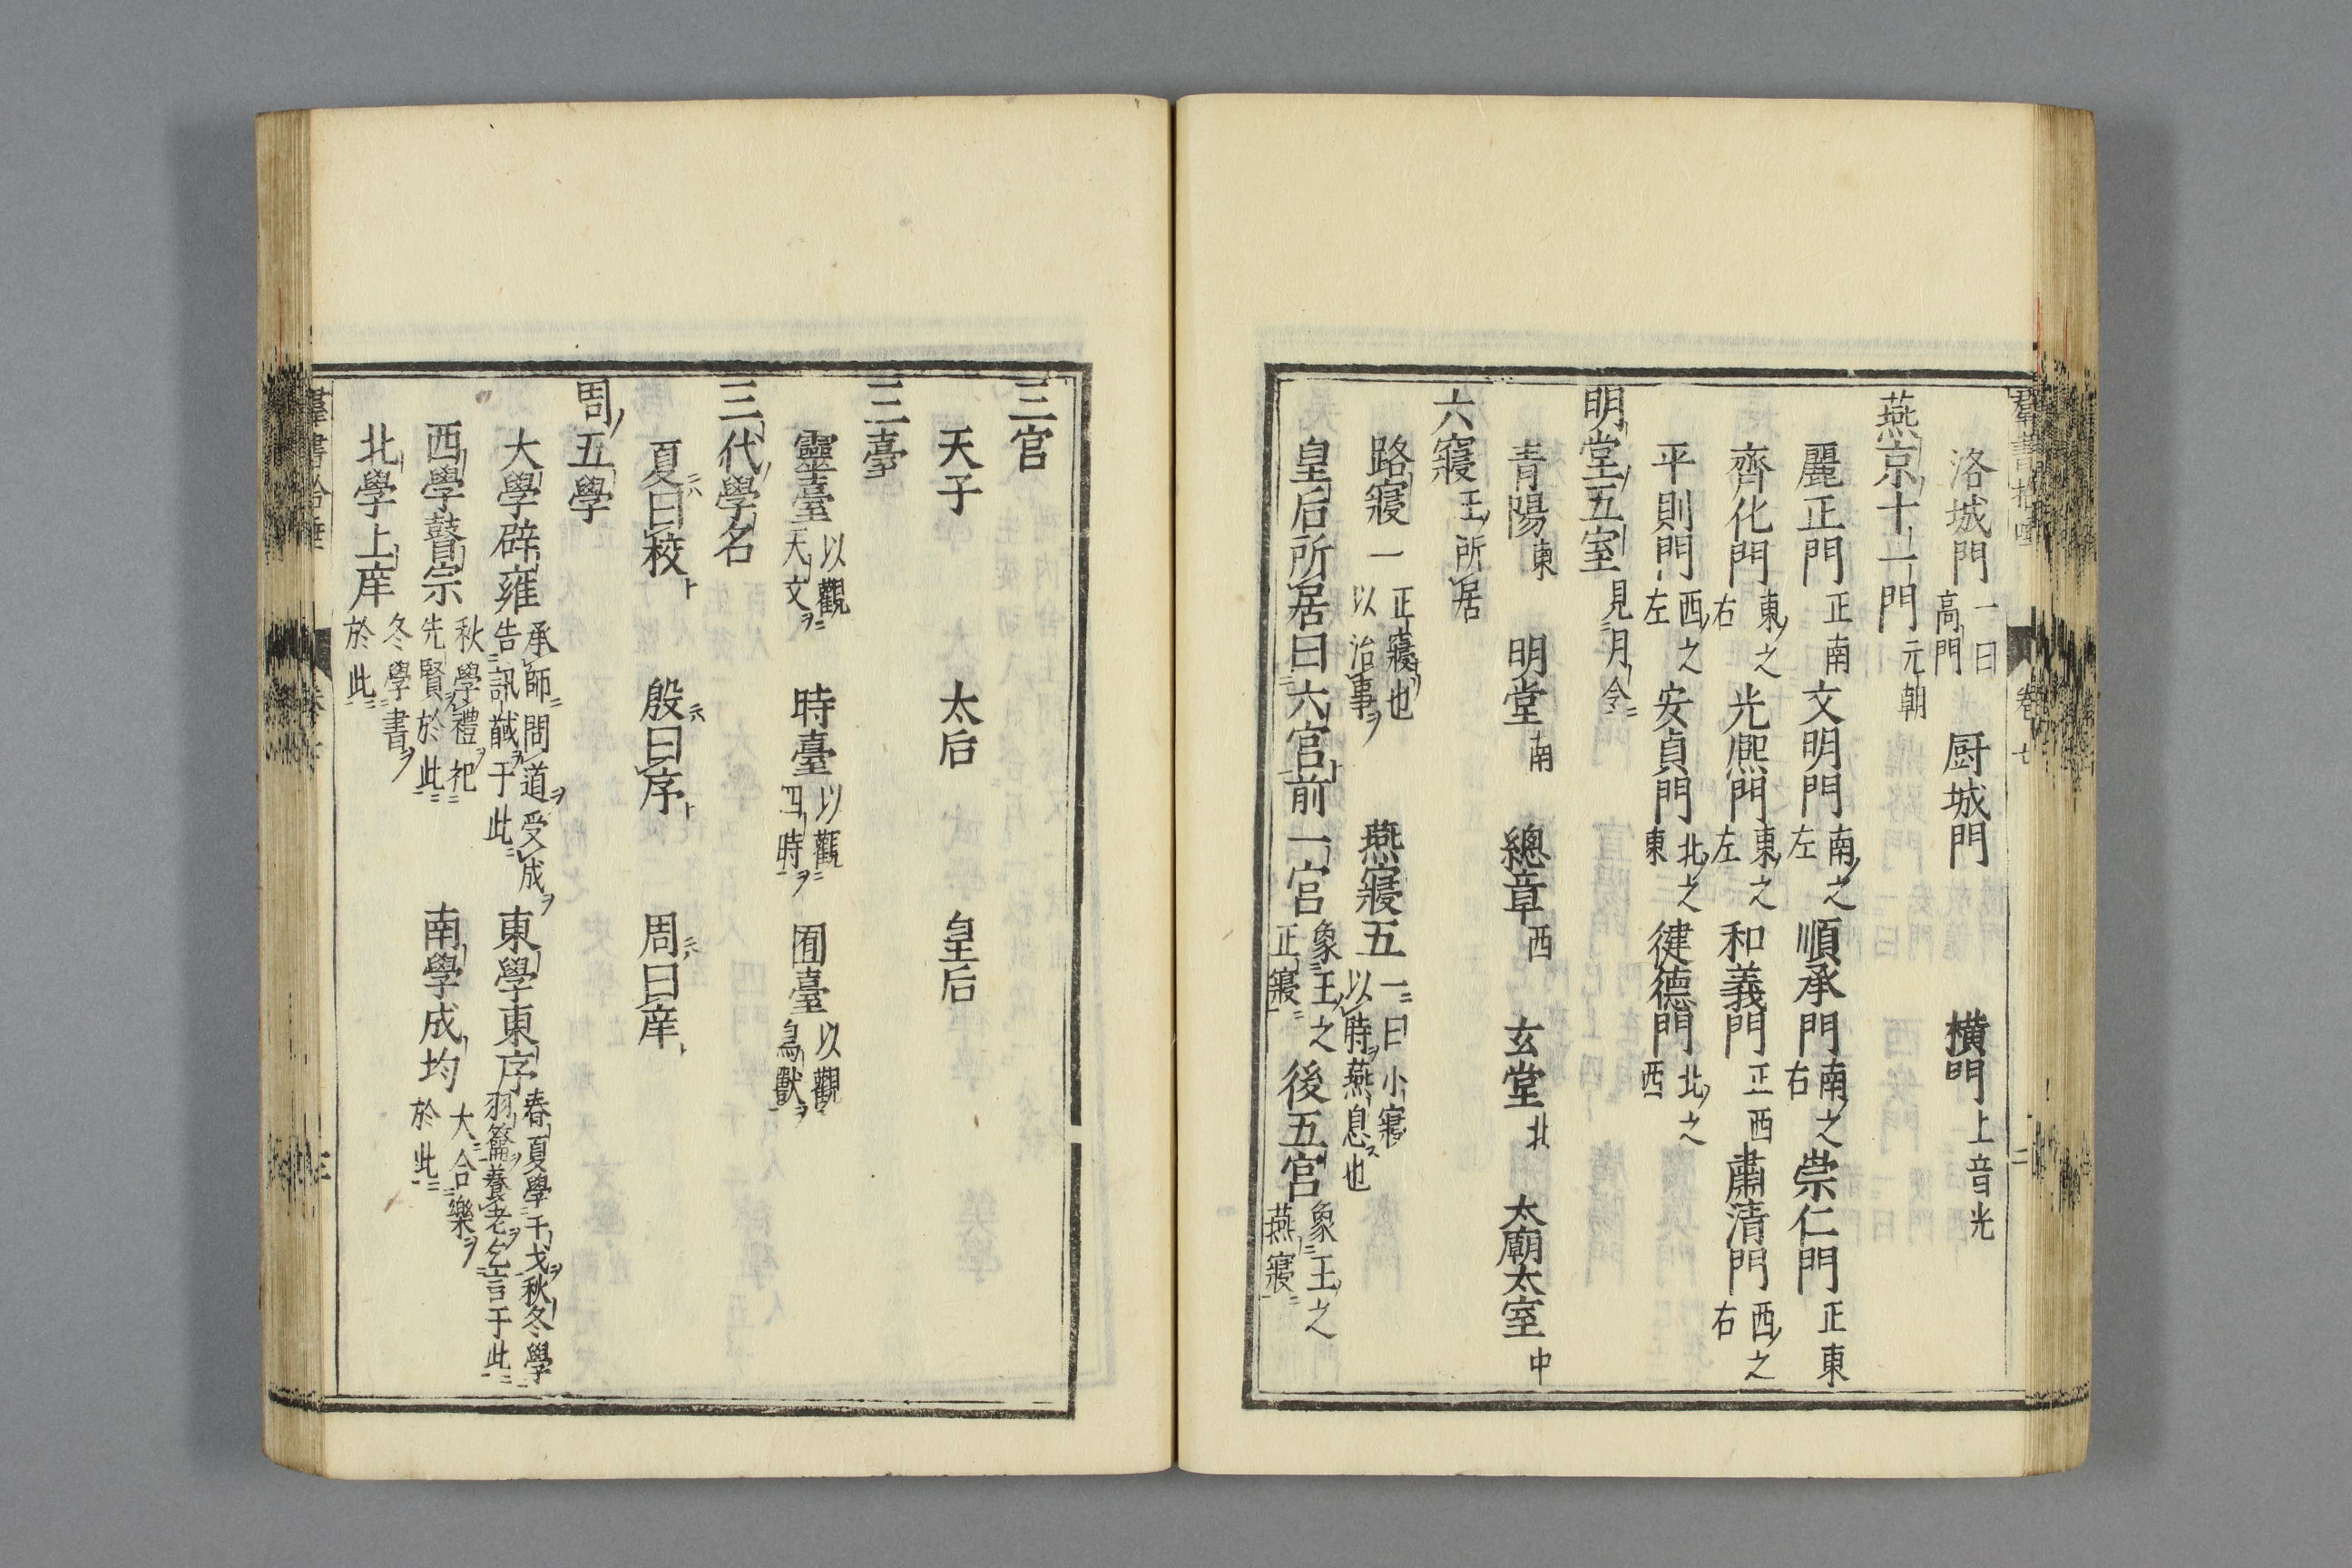 洛城門一曰高門 厨城門 橫門上音光
燕京十一門元朝
麗正門正南 文明門南之左 順承門南之右 崇仁門正東
齊化門東之右 光熈門東之左 和義門正西 肅清門西之右
平則門西之左 安貞門北之東 健德門北之西
明堂五室見月令
青陽東 明堂南 總章西 玄堂北 太廟太室中
六寢王所居
路寢一正寢也以治事 燕寢五一曰小寢以時燕息也
皇后所居曰六宮前一宮象王之正寢 後五宮象王之燕寢
三宮
天子 太后 皇后
三臺
靈臺以觀天文 時臺以觀四時 囿臺以觀鳥獸
三代學名
夏曰校 殷曰序 周曰庠
周五學
大學辟雍承師問道受成告訊馘于此 東學東序春夏學干戈秋冬學羽籥養老乞言于此
西學瞽宗秋學禮祀先賢於此 南學成均大合樂於此
北學上庠冬學書於此